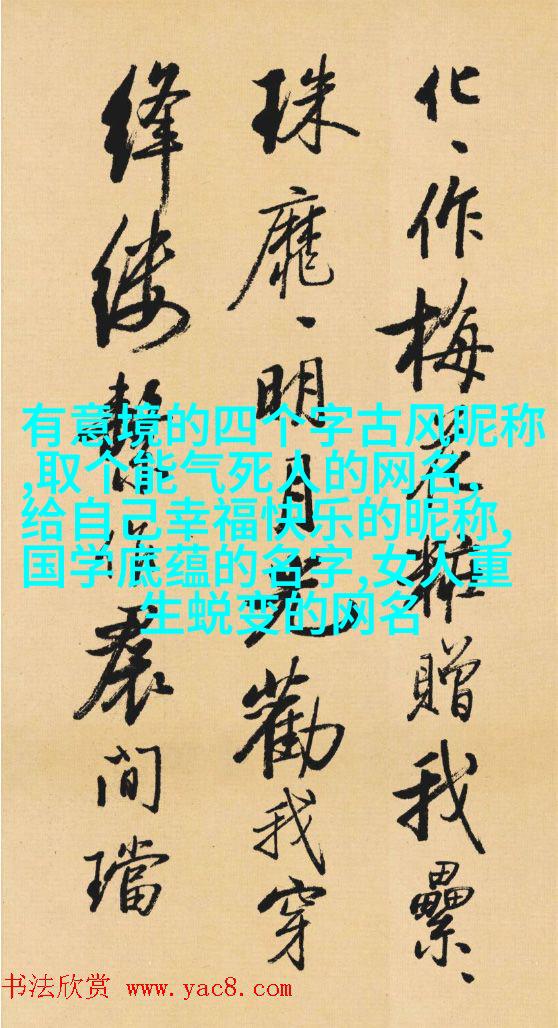 化、作梅花粧贈我纍、
珠靡、明月光勸我穿
絳縷繫作裠間璫
有意境的四个字古风昵称
,取个能气死人的网名,
给自己幸福快乐的昵称,
国学底蕴的名字,女人重
生蜕变的网名
书法欣赏 www.yac8.com